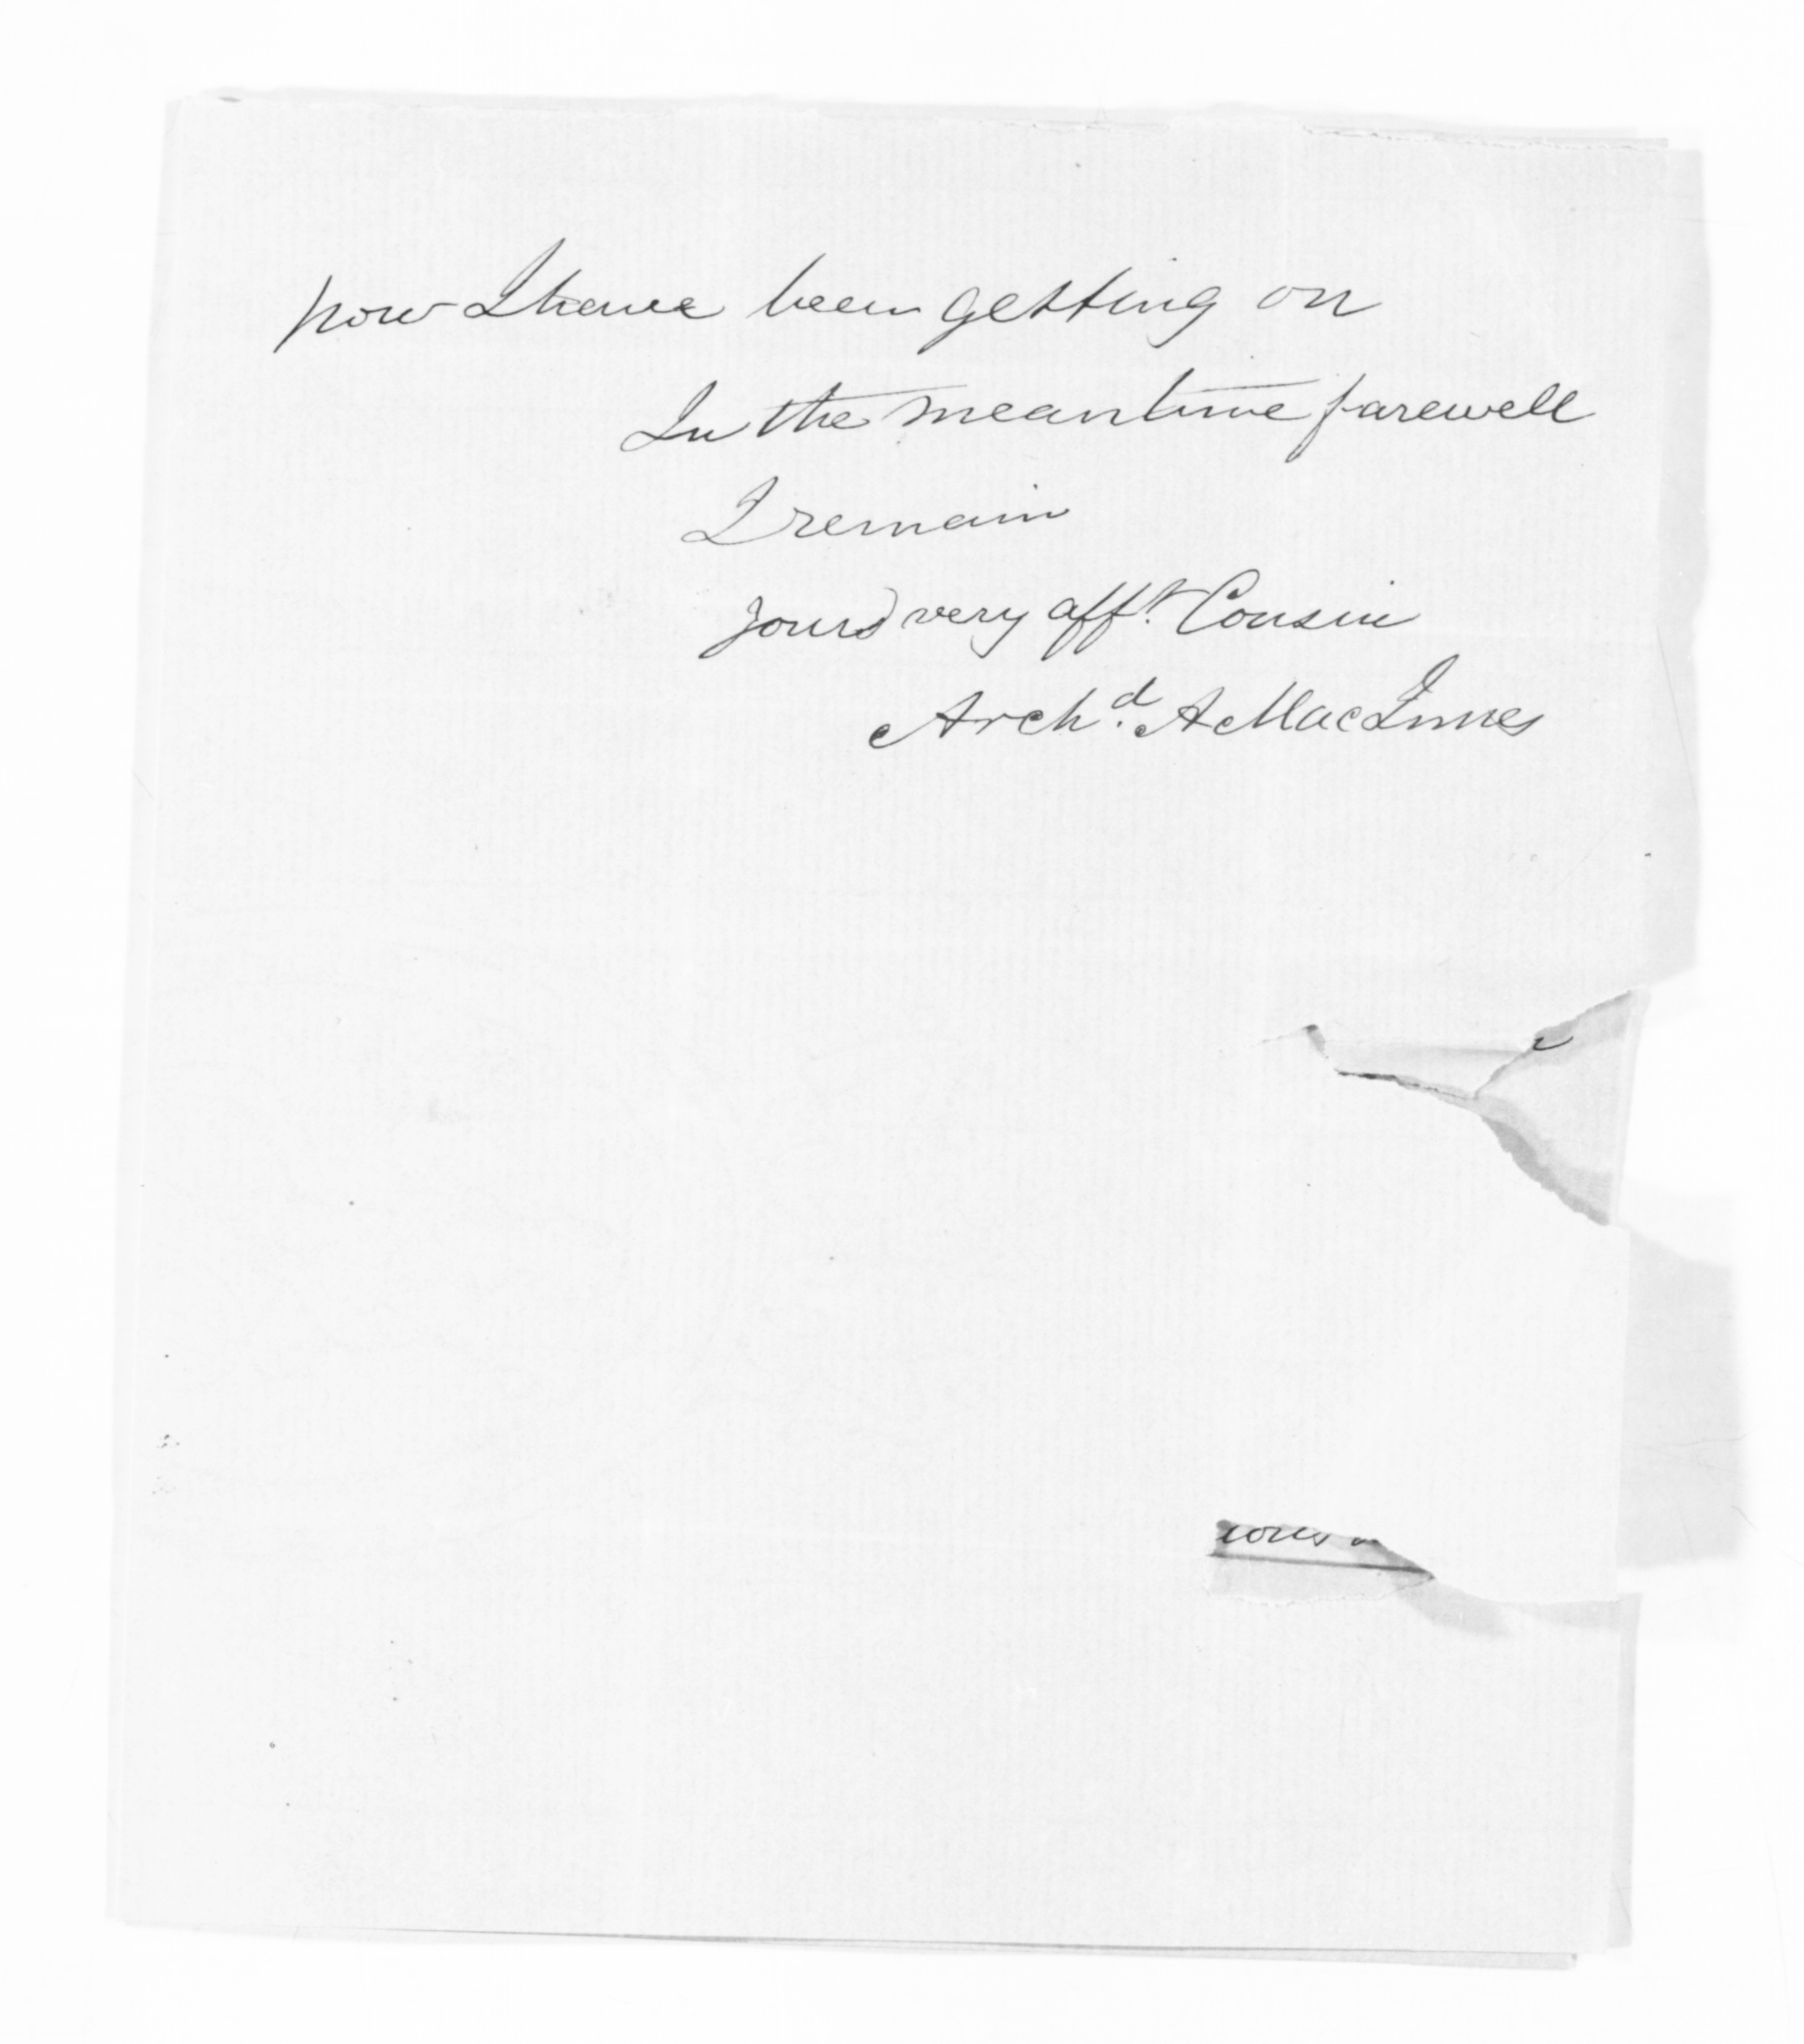 how I have been getting on
In the meantime farewell
I remain
yours very afft. Cousin
Archd. A MacInnes